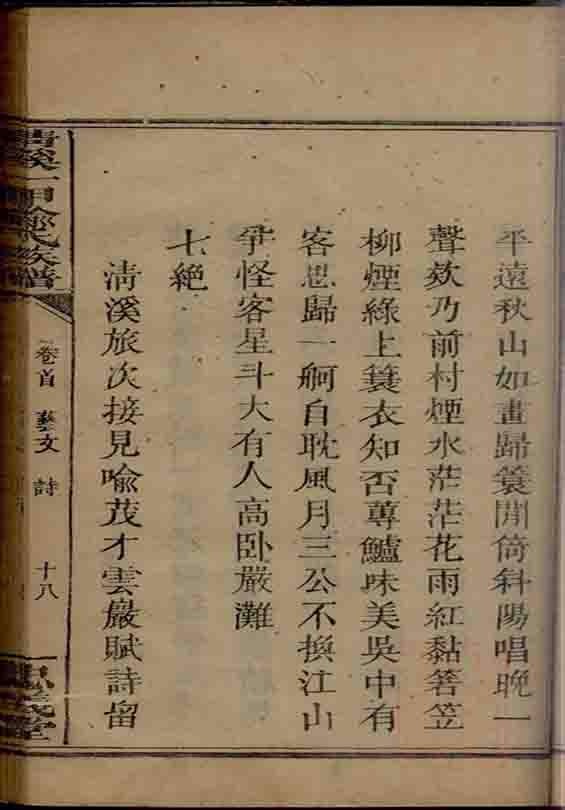 平遠秋山如畫歸蓑閒倚斜陽唱晚一
聲欸乃前村煙水茫茫花雨紅黏箬笠
柳煙綠上蓑衣知否蓴鱸味美吳中有
客思歸一舸自耽風月三公不換江山
爭怪客星斗大有人高臥嚴灘
七絕
淸溪旅次接見喩茂才雲巖賦詩留
卷首 藝文 詩 十八